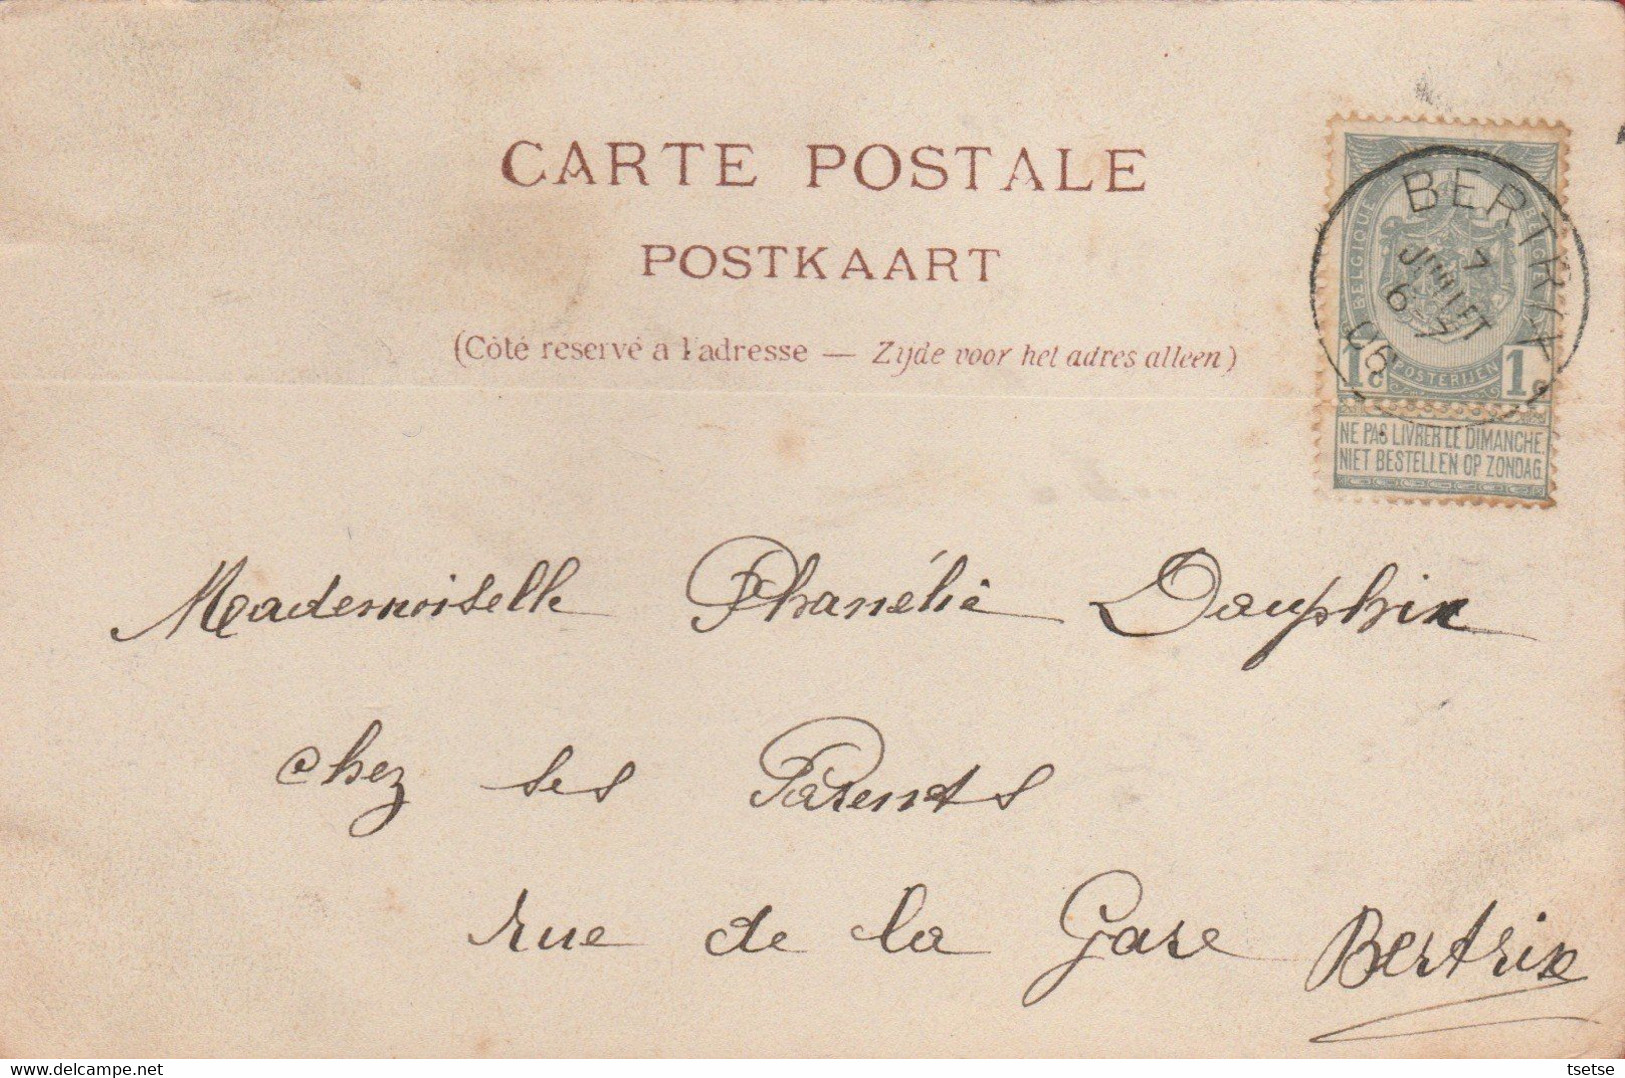 CARTE POSTALE
POSTKAART
(Côté réservé a l'adresse — Zyde voor het adres alleen)
BERTRIX
7
JUILLET
6-7
06
BELGIQUE
BELGIË
POSTERIJEN
1c 1c
NE PAS LIVRER LE DIMANCHE.
NIET BESTELLEN OP ZONDAG.
Mademoiselle Phanélie Dauphin
chez ses Parents
rue de la Gare Bertrix
www.delcampe.net
tsetse